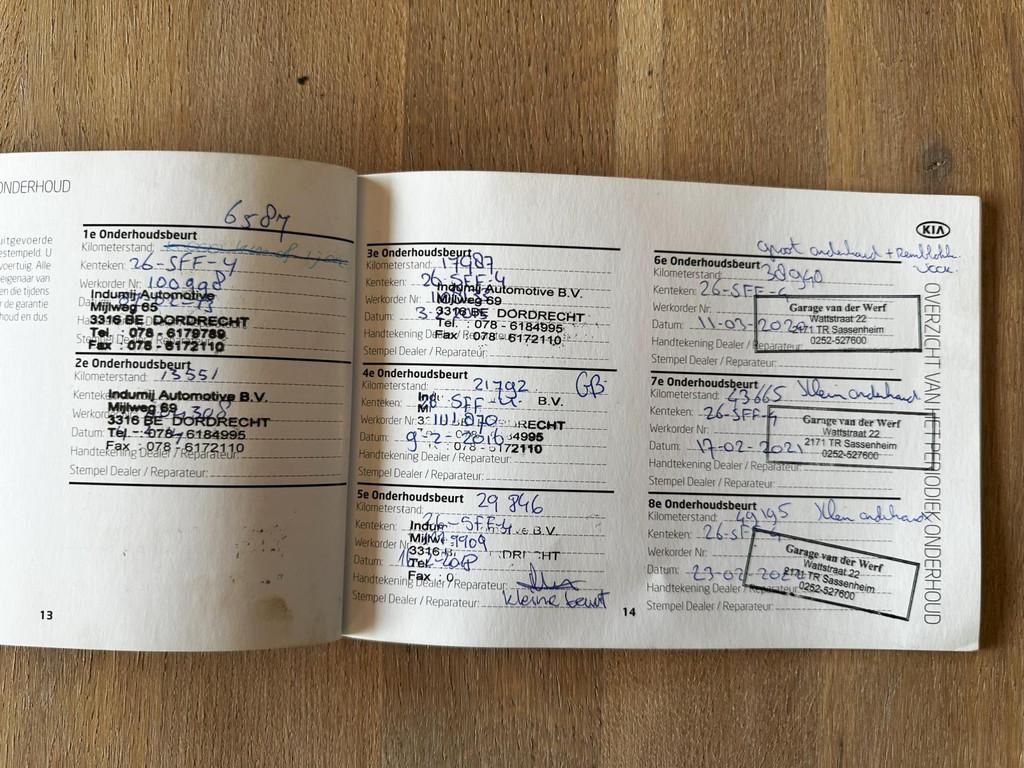 ONDERHOUD
uitgevoerde
estempeld. U
voertuig. Alle
eigenaar van
en die tijdens
r de garantie
houd en dus
6587
1e Onderhoudsbeurt
Kilometerstand:
Kenteken: 26-SFF-4
Werkorder Nr: 100998
Indumij Automotive
Mijlweg 65
3316 BE DORDRECHT
Tel. : 078 - 6179789
Fax : 078 - 6172110
2e Onderhoudsbeurt
Kilometerstand: 13551
Indumij Automotive B.V.
Mijlweg 69
3316 BE DORDRECHT
Tel. : 078 - 6184995
Fax : 078 - 6172110
Handtekening Dealer / Reparateur:
Stempel Dealer / Reparateur:
13
3e Onderhoudsbeurt
Kilometerstand: 17487
Kenteken: 26-SFF-4
Indumij Automotive B.V.
Werkorder Nr
Mijlweg 69
Datum:
3316 BE DORDRECHT
Tel. : 078 - 6184995
Handtekening
Fax : 078 - 6172110
Stempel Dealer / Reparateur:
4e Onderhoudsbeurt
GB
Kilometerstand: 21792
Kenteken: SFF B.V.
Werkorder Nr: DRECHT
Datum: 9-2-2016
078-6172110
Handtekening Dealer / Reparateur:
Stempel Dealer / Reparateur:
5e Onderhoudsbeurt
Kilometerstand: 29 846
Kenteken: 26-SFF-4 B.V.
Werkorder Nr:
3316 B DRECHT
Datum: 2018
Tel
Fax : 0
Handtekening Dealer / Reparateur:
Stempel Dealer / Reparateur: kleine beurt
14
KIA
groot onderhoud + Remblokken voor.
6e Onderhoudsbeurt
Kilometerstand: 38940
Kenteken: 26-SFF-4
Werkorder Nr:
Garage van der Werf
Wattstraat 22
Datum: 11-03-2020
2171 TR Sassenheim
0252-527600
Handtekening Dealer / Reparateur:
Stempel Dealer / Reparateur:
7e Onderhoudsbeurt
Kilometerstand: 43665 Klein onderhoud
Kenteken: 26-SFF-4
Garage van der Werf
Werkorder Nr:
Wattstraat 22
Datum: 17-02-2021
2171 TR Sassenheim
0252-527600
Handtekening Dealer / Reparateur:
Stempel Dealer / Reparateur:
8e Onderhoudsbeurt
Kilometerstand: 49195 Klein onderhoud
Kenteken: 26-SFF-4
Garage van der Werf
Werkorder Nr:
Wattstraat 22
Datum: 23-02-
2171 TR Sassenheim
0252-527600
Handtekening Dealer / Reparateur:
Stempel Dealer / Reparateur:
OVERZICHT VAN HET PERIODIEK ONDERHOUD